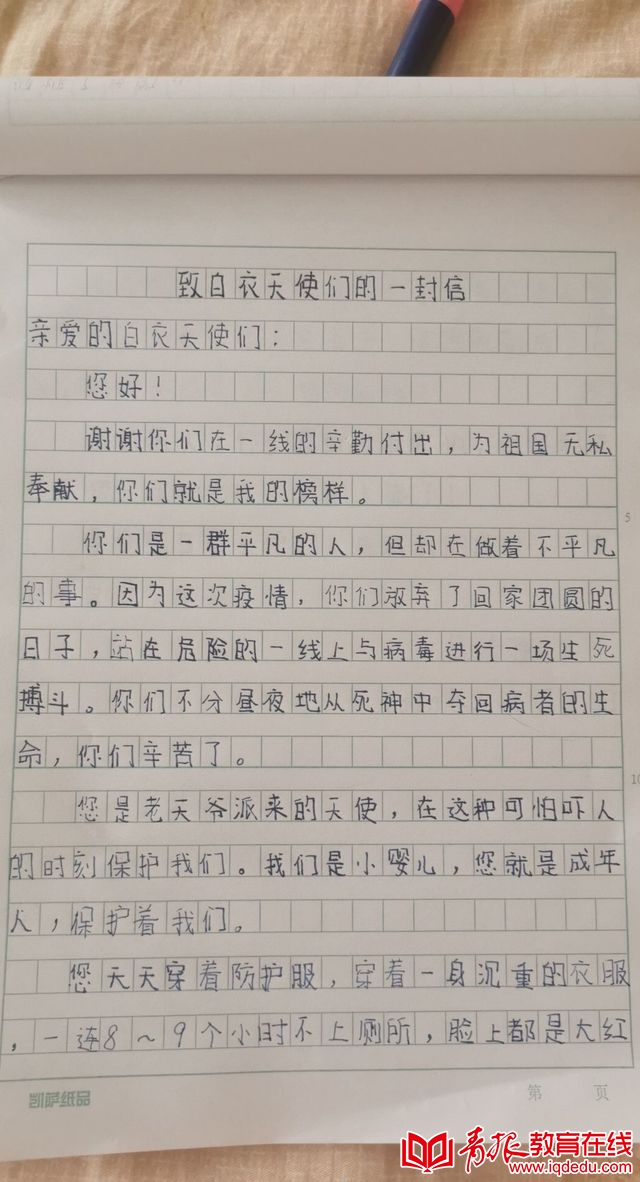 致白衣天使们的一封信
亲爱的白衣天使们：
您好！
谢谢你们在一线的辛勤付出，为祖国无私
奉献，你们就是我的榜样。
5
你们是一群平凡的人，但却在做着不平凡
的事。因为这次疫情，你们放弃了回家团圆的
日子，站在危险的一线上与病毒进行一场生死
搏斗。你们不分昼夜地从死神中夺回病者的生
命，你们辛苦了。
10
您是老天爷派来的天使，在这种可怕吓人
的时刻保护我们。我们是小婴儿，您就是成年
人，保护着我们。
您天天穿着防护服，穿着一身沉重的衣服
，一连8～9个小时不上厕所，脸上都是大红
凯萨纸品
第 页
青报教育在线
www.iqdedu.com